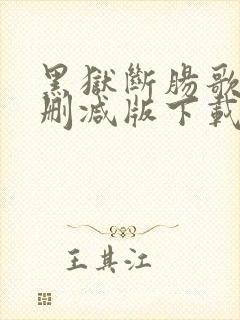 黑獄斷腸歌
刪減版下載
王其江